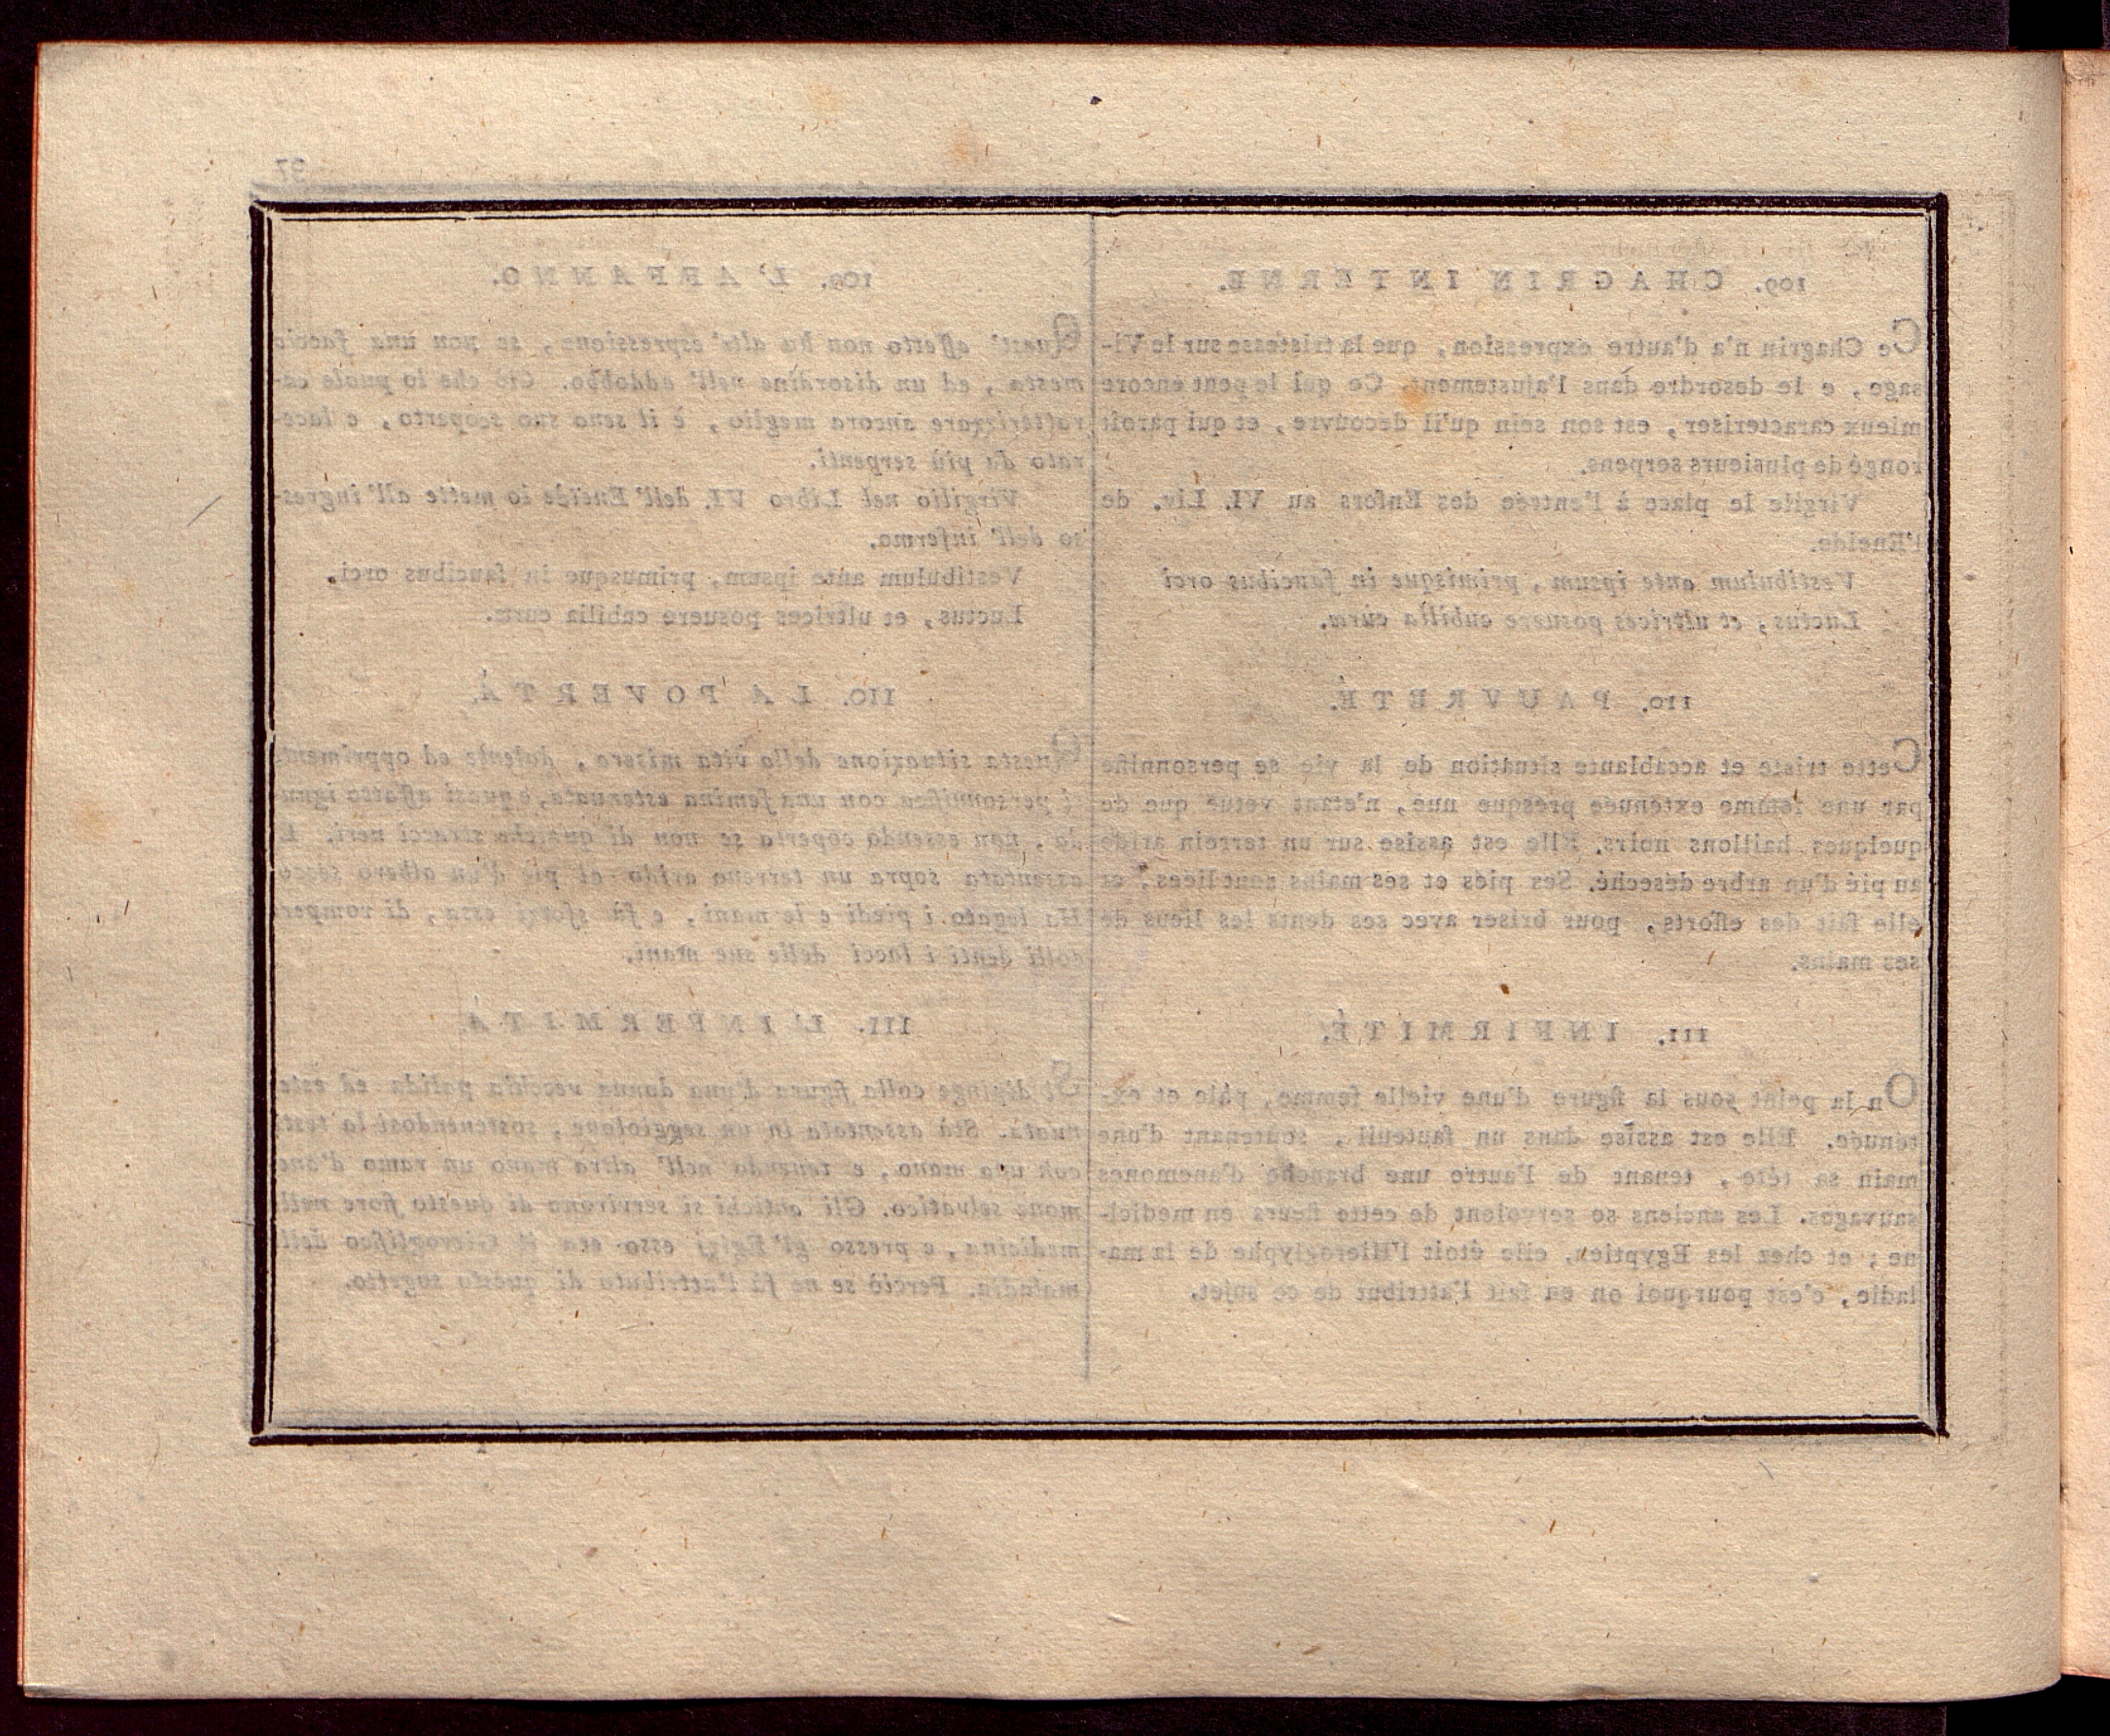 37
109. CHAGRIN INTERNE.
Ce Chagrin n'a d'autre expression, que la tristesse sur le Vi-
sage, e le desordre dans l'ajustement. Ce qui le peut encore
mieux caracteriser, est son sein qu'il découvre, et qui paroît
rongé de plusieurs serpens.
Virgile le place à l'entrée des Enfers au VI. Liv. de
l'Eneide.
Vestibulum ante ipsum, primisque in faucibus orci
Luctus; et ultrices posuere cubilia curæ.
110. PAUVRETÉ.
Cette triste et accablante situation de la vie se personnifie
par une femme extenuée presque nue, n'etant vetue que de
quelques haillons noirs. Elle est assise sur un terrein aride
au pié d'un arbre déseché. Ses piés et ses mains sont liées, et
elle fait des efforts, pour briser avec ses dents les liens de
ses mains.
111. INFIRMITÉ.
On la peint sous la figure d'une vielle femme, pâle et ex-
ténuée. Elle est assise dans un fauteuil, soutenant d'une
main sa tête, tenant de l'autre une branche d'anemones
sauvages. Les anciens se servoient de cette fleurs en medici-
ne; et chez les Egyptien, elle étoit l'Hieroglyphe de la ma-
ladie, c'est pourquoi on en fait l'attribut de ce sujet.
109. L'AFFANNO.
Quest' affetto non ha altr' espressione, se non una faccia
mesta, ed un disordine nell' addobbo. Ciò che lo puole ca-
ratterizzare ancora meglio, è il seno suo scoperto, e lace-
rato da più serpenti.
Virgilio nel Libro VI. dell' Eneide lo mette all' ingres-
so dell' inferno.
Vestibulum ante ipsum, primusque in faucibus orci,
Luctus, et ultrices posuere cubilia curæ.
110. LA POVERTÀ.
Questa situazione della vita misera, dolente ed opprimente
personnifica con una femina estenuata, quasi affatto ignu-
da, non essendo coperta se non di qualche stracci neri. E
assentata sopra un terreno arido al piè d'un albero secco
Ha legato i piedi e le mani, e fà sforzi essa, di rompere
colli denti i lacci delle sue mani.
111. L'INFERMITÀ.
Si dipinge colla figura d'una donna vecchia palida ed este
nuata. Stà assentata in un seggiolone, sostenendosi la testa
con una mano, e tenendo nell' altra mano un ramo d'ane
mone selvatico. Gli antichi si servirono di questo fiore nell
medicina, e presso gl' Egizj esso era il Gieroglifico dell
maladia. Perciò se ne fà l'attributo di questo sogetto.